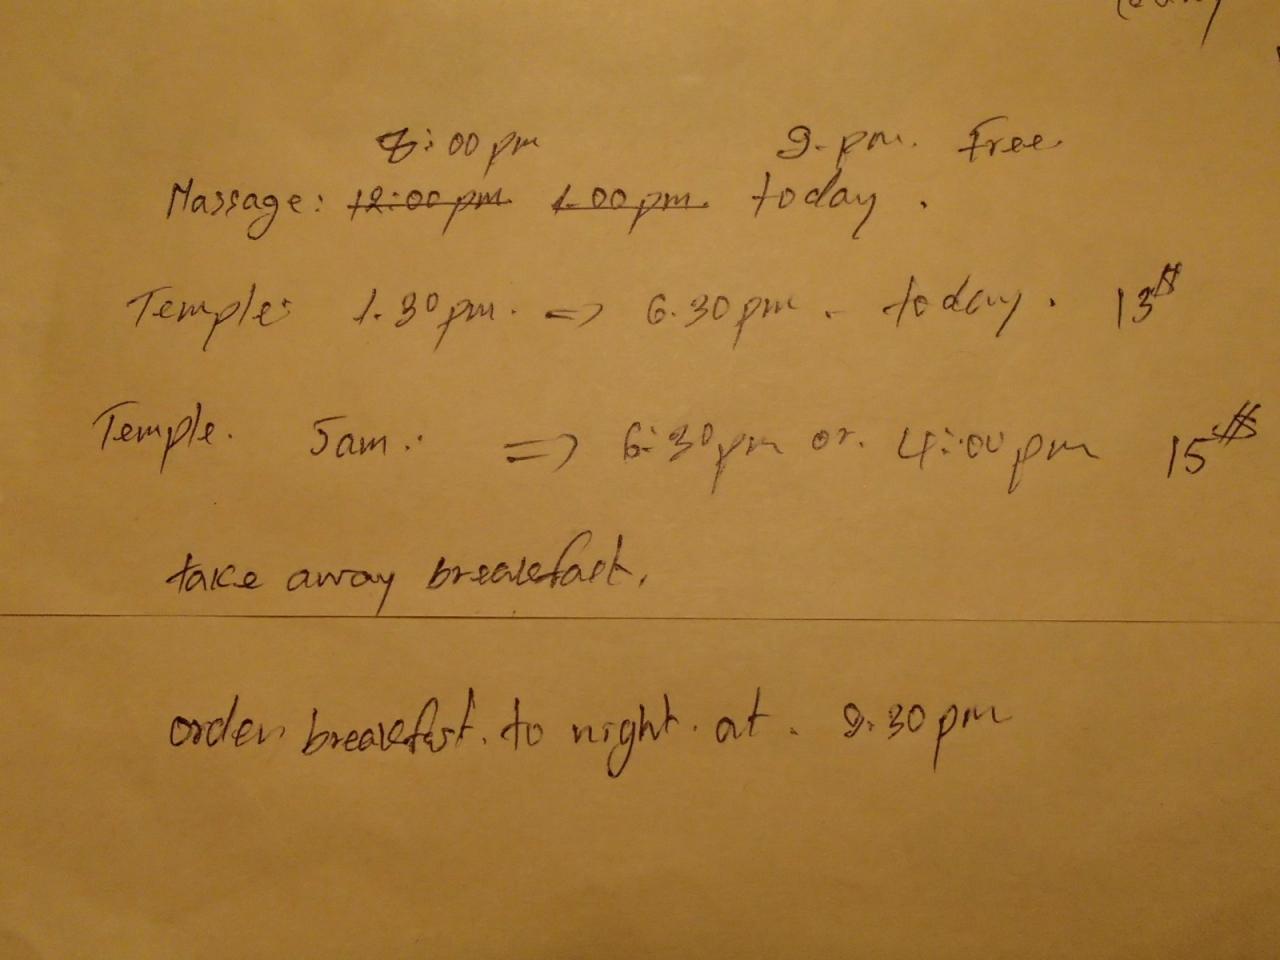 8:00 pm 9. pm. Free
Massage: 12:00 pm 1.00 pm. today.
Temple: 1.30 pm. => 6.30 pm. today. 13$
Temple. 5am. => 6:30 pm or. 4:00 pm 15$
take away breakfast.
order breakfast. to night. at. 9.30 pm